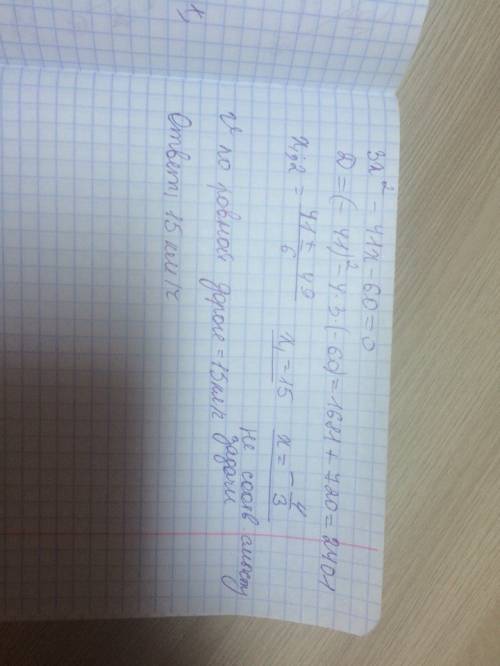 3x² - 41x - 60 = 0
D = (-41)² - 4·3(-60) = 1681 + 720 = 2401
x₁,₂ = (41 ± 49)/6 x₁ = 15 x = -4/3
не соотв
задачи
v по ровной дороге = 15 км/ч
Ответ, 15 км/ч
x,